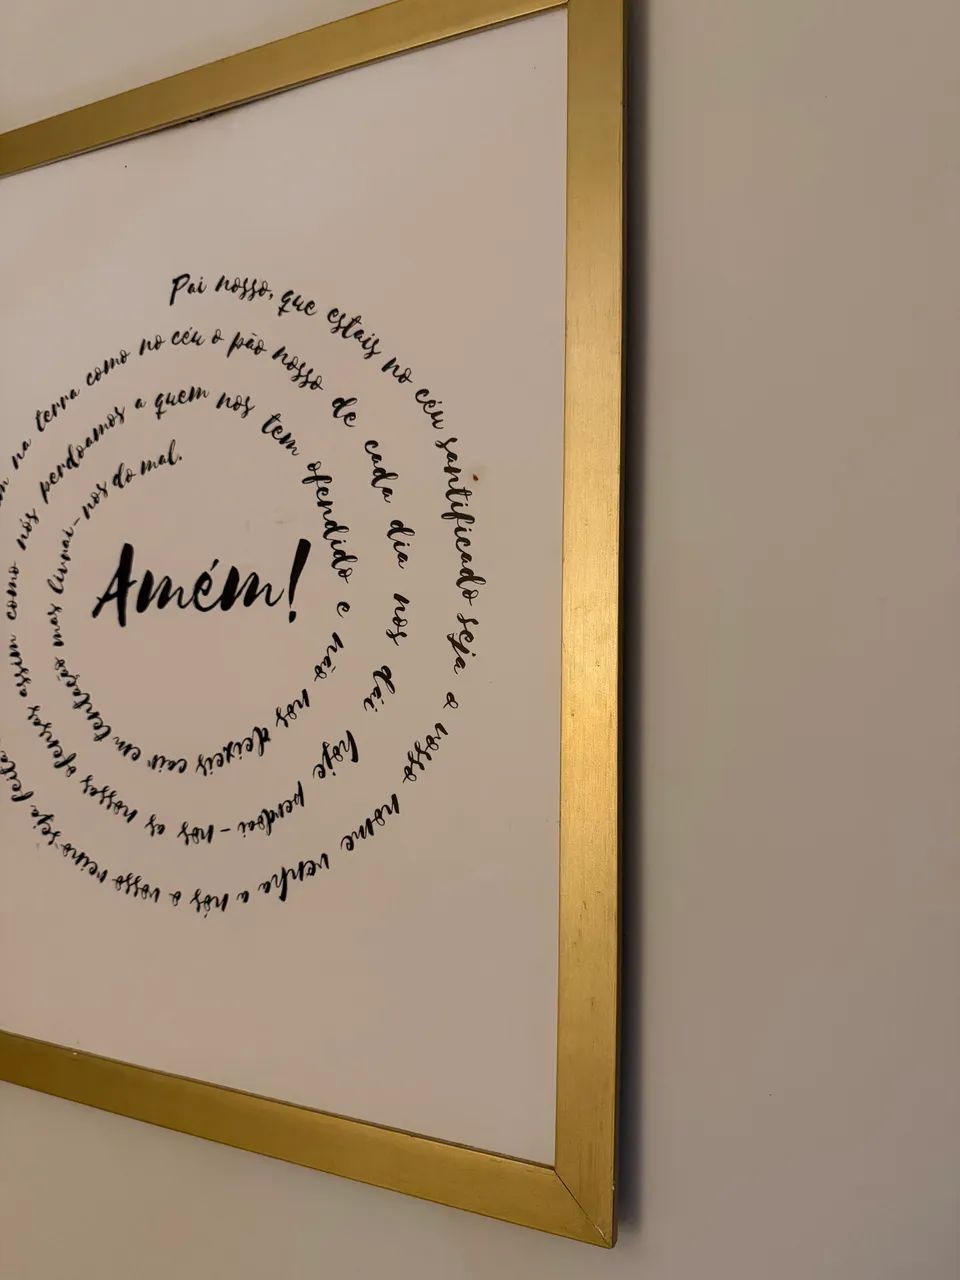 Pai nosso, que estais no céu santificado seja o vosso nome venha a nós o vosso reino seja
na terra como no céu o pão nosso de cada dia nos dai hoje perdoai-nos as nossas ofensas assim como nós perdoamos a quem nos tem ofendido e não nos deixeis cair em tentação mas livrai-nos do mal.
Amém!